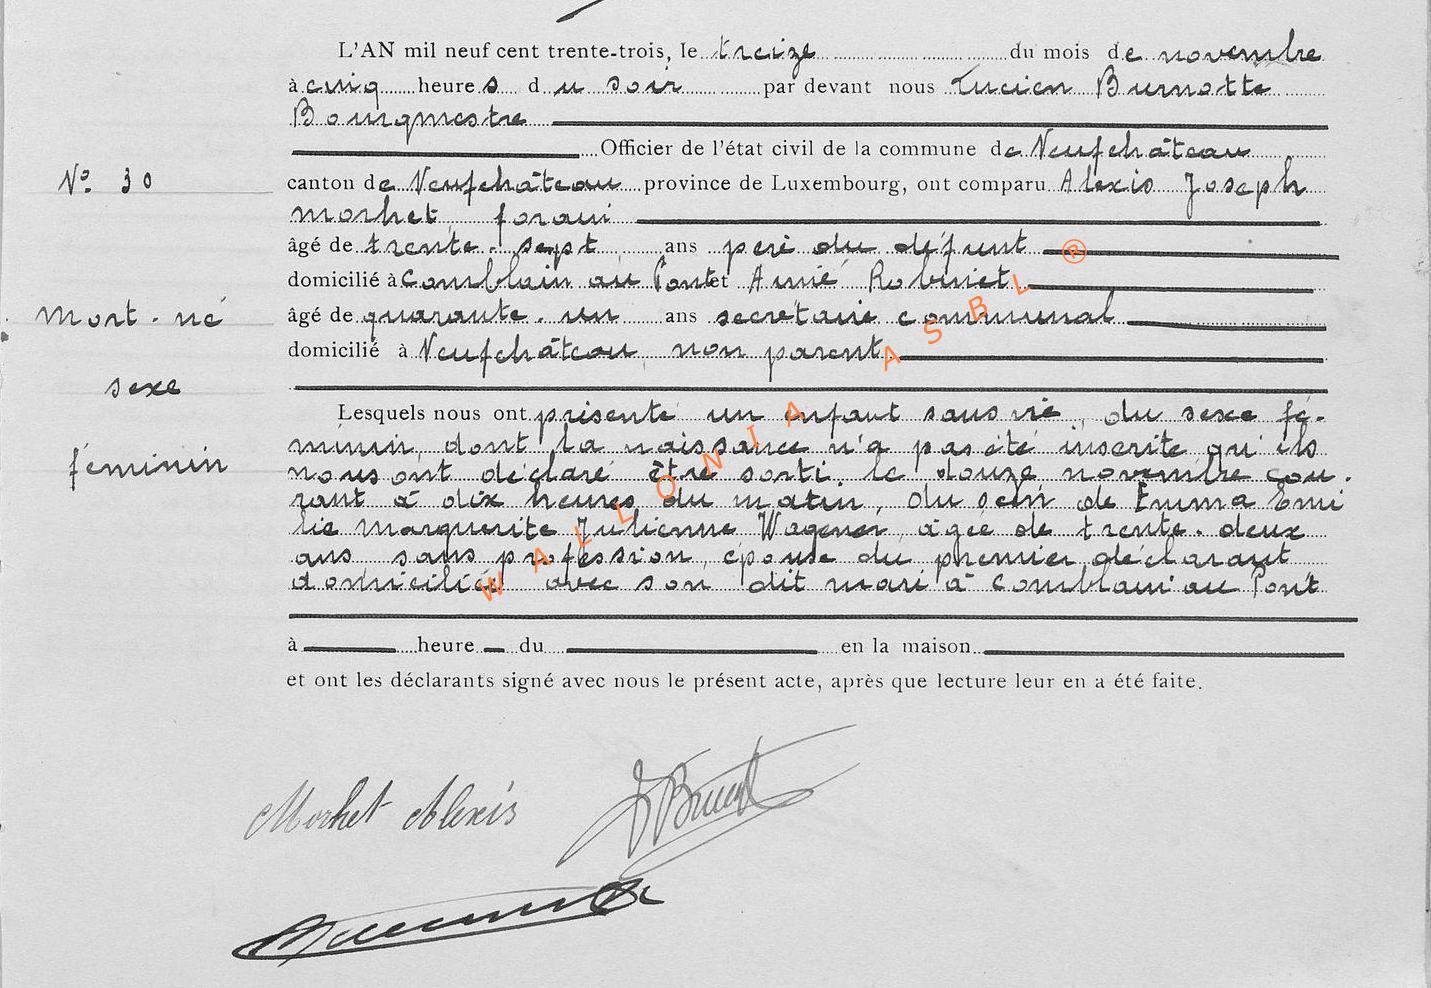 L'AN mil neuf cent trente-trois, le treize du mois de novembre
à cinq heures du soir par devant nous Lucien Burnotte
Bourgmestre
Officier de l'état civil de la commune de Neufchâteau
N° 30
canton de Neufchâteau province de Luxembourg, ont comparu Alexis Joseph
Morhet forain
âgé de trente-sept ans père du défunt
domicilié à Comblain au Pont et Aimé Robinet
Mort-né
âgé de quarante-un ans secrétaire communal
domicilié à Neufchâteau non parent
sexe
Lesquels nous ont présenté un enfant sans vie, du sexe fé-
féminin
minin, dont la naissance n'a pas été inscrite qu'ils
nous ont déclaré être sorti le douze novembre cou-
rant à dix heures du matin, du sein de Emma Emi
lie Marguerite Julienne Wagener, âgée de trente-deux
ans sans profession, épouse du premier déclarant
domiciliée avec son dit mari à Comblain au Pont
à heure du en la maison
et ont les déclarants signé avec nous le présent acte, après que lecture leur en a été faite.
Morhet Alexis
WALLONIA ASBL ®